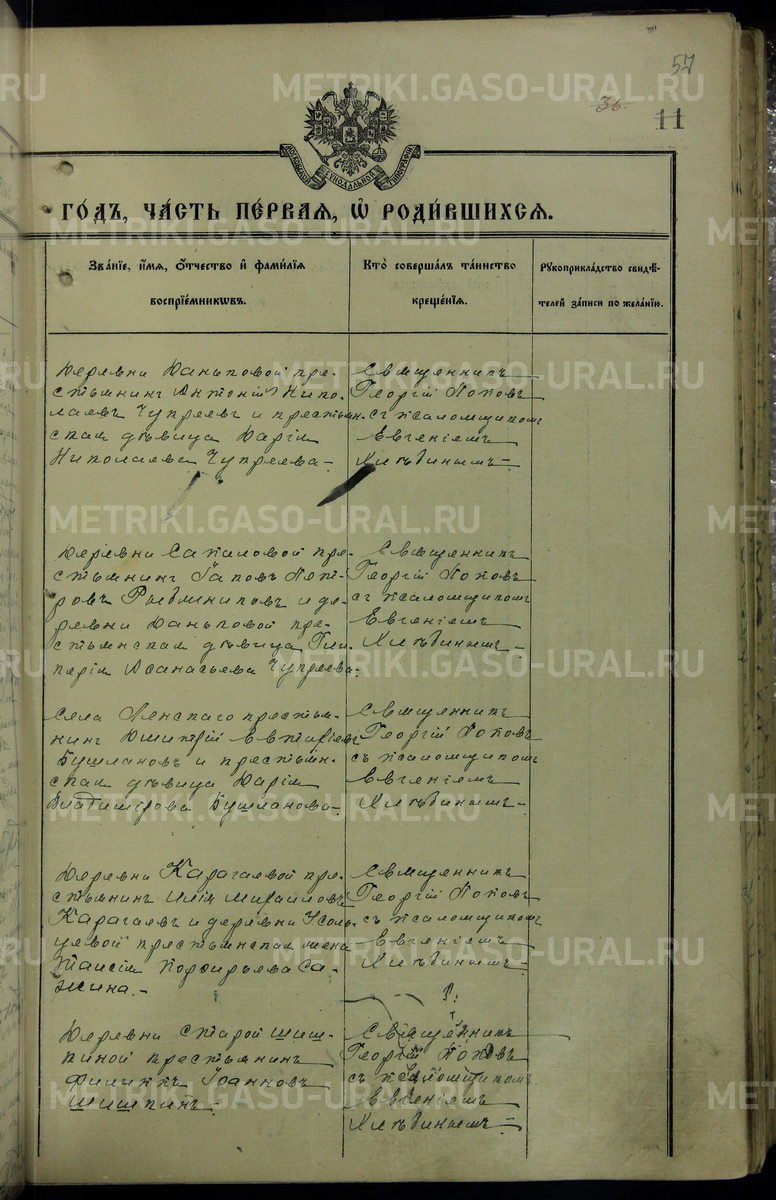 57
36.
11
ПЕЧАТАНО ВЪ СѴНОДАЛЬНОЙ ТИПОГРАФІИ
ГО́ДЪ, ЧА́СТЬ ПЕ́РВАѦ, Ѡ҆ РОДИ́ВШИХСѦ.
Зва́нїе, и҆́мѧ, ѻ҆́тчество и҆ фами́лїѧ
воспрїе́мникѡвъ.
Кто̀ соверша́лъ та́инство
креще́нїѧ.
Рꙋкоприкла́дство свидѣ́-
телей за́писи по жела́нїю.
Деревни Даньковой кре-
стьянинъ Антоній Нико-
лаевъ Чупреевъ и крестьян-
ская дѣвица Дарія
Николаева Чупреева.-
Священникъ
Георгій Поповъ
съ псаломщикомъ
Евгеніемъ
Хлѣбинымъ.-
Деревни Сакаловой кре-
стьянинъ Іаковъ Пет-
ровъ и де-
ревни Даньковой кре-
стьянская дѣвица Гли-
керія Аѳанасьева Чупреева.
Священникъ
Георгій Поповъ
съ псаломщикомъ
Евгеніемъ
Хлѣбинымъ.-
Села Ленскаго крестья-
нинъ Димитрій Евтихіевъ
Бушлановъ и крестьян-
ская дѣвица Дарія
Владимірова Бушланова.-
Священникъ
Георгій Поповъ
съ псаломщикомъ
Евгеніемъ
Хлѣбинымъ.-
Деревни Карагаевой кре-
стьянинъ Илія Михаиловъ
Карагаевъ и деревни Усоль-
цевой крестьянская жена
Таисія Порфирьева Са-
жина.-
Священникъ
Георгій Поповъ
съ псаломщикомъ
Евгеніемъ
Хлѣбинымъ.-
Деревни Старой Шиш-
киной крестьянинъ
Филиппъ Іоанновъ
Шишкинъ.
Священникъ
Георгій Поповъ
съ псаломщикомъ
Евгеніемъ
Хлѣбинымъ.-
METRIKI.GASO-URAL.RU